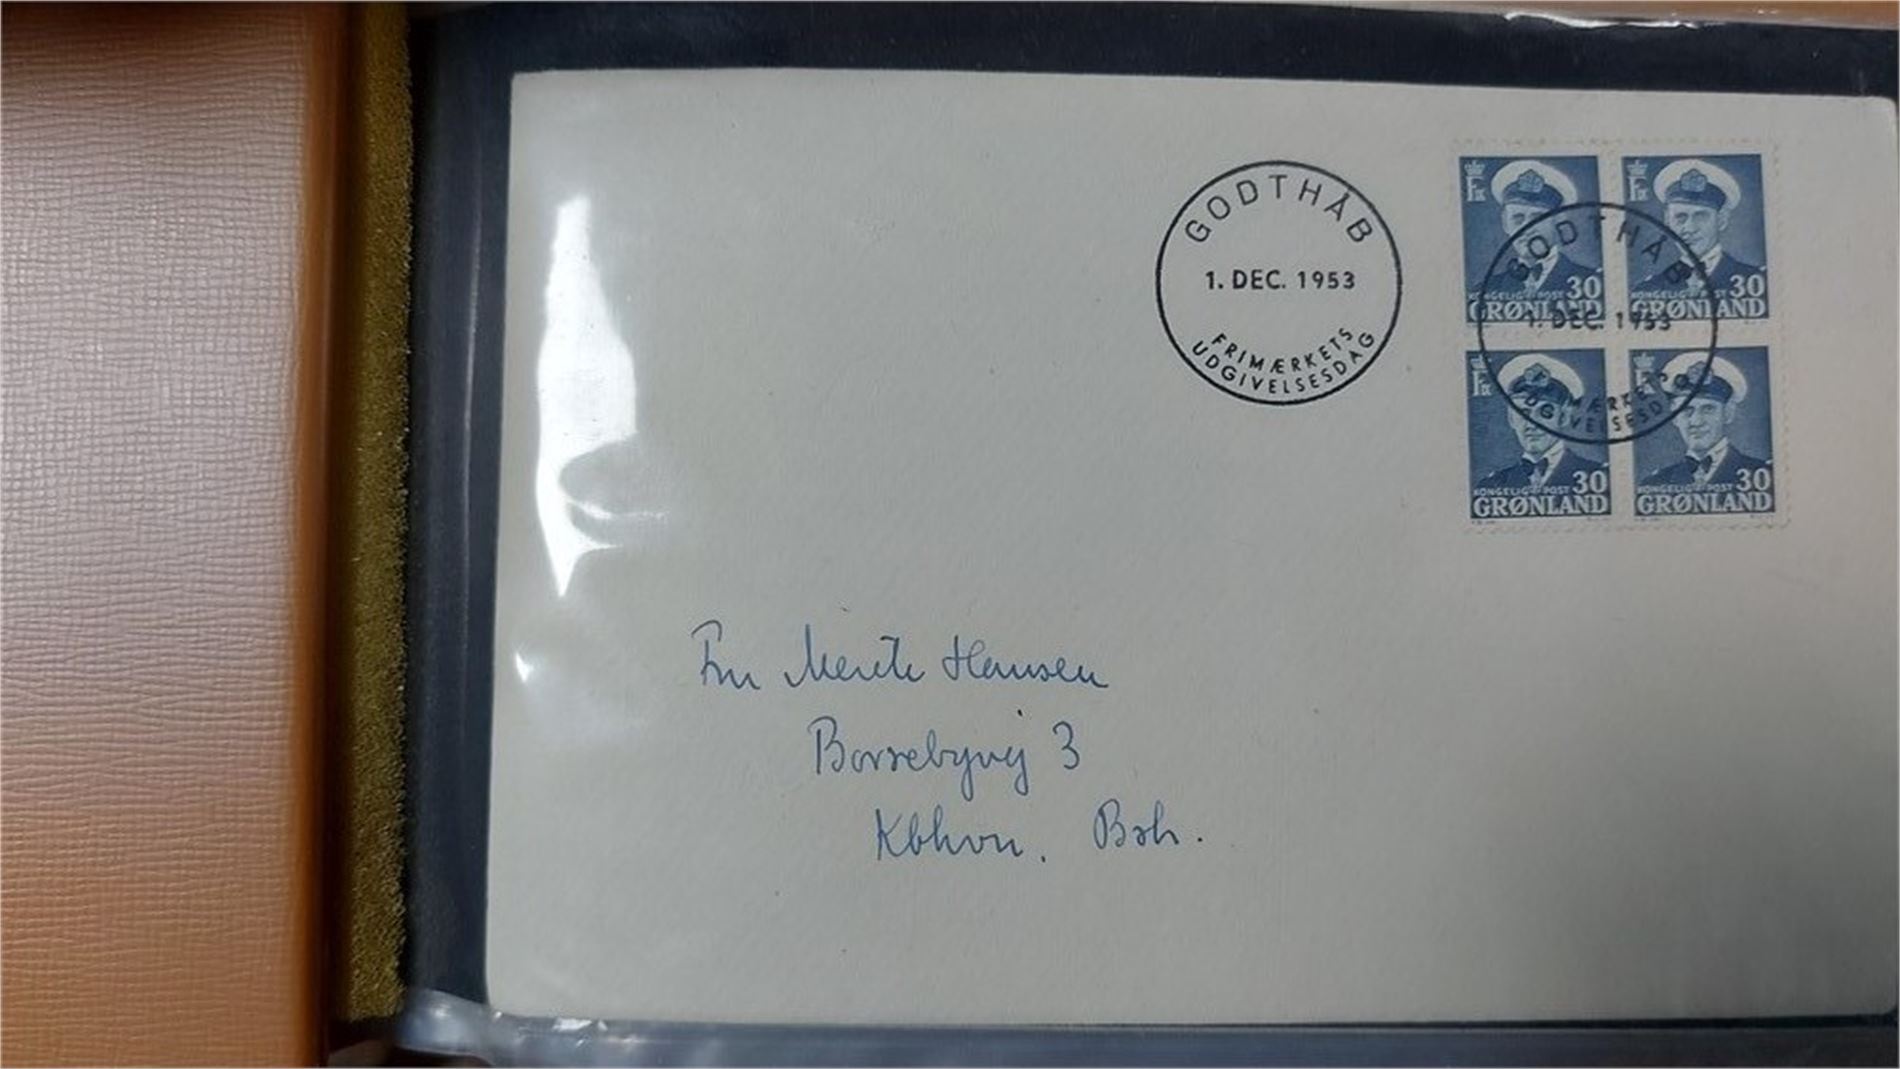 GODTHÅB
1. DEC. 1953
FRIMÆRKETS
UDGIVELSESDAG
GODTHÅB
1. DEC. 1953
FRIMÆRKETS
UDGIVELSESDAG
30
KONGELIG POST
GRØNLAND
30
KONGELIG POST
GRØNLAND
30
KONGELIG POST
GRØNLAND
30
KONGELIG POST
GRØNLAND
Fru Merete Hansen
Borrebyvej 3
Kbhvn. Bsh.